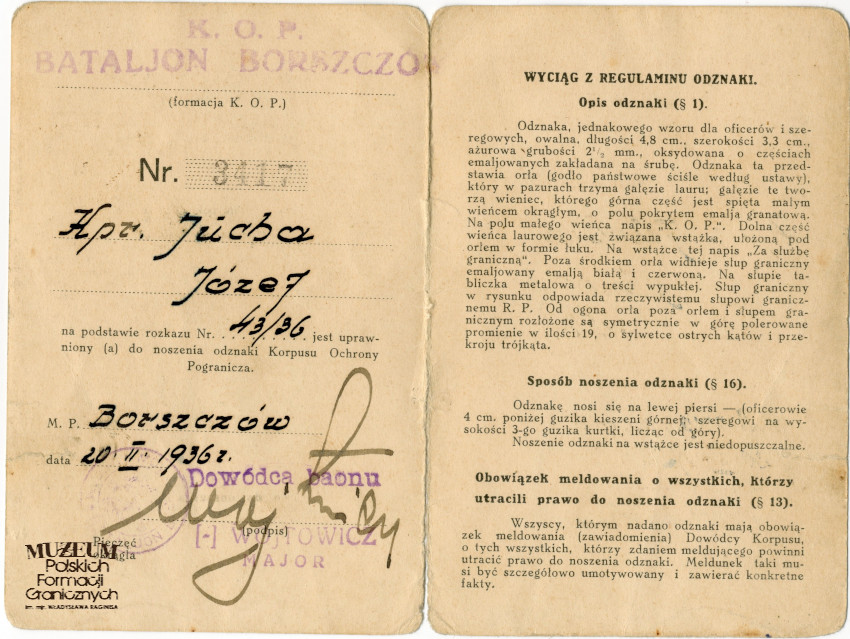 K. O. P.
BATALJON BORSZCZÓW
(formacja K. O. P.)
Nr. 3417
Kpr. Jucha
Józef
na podstawie rozkazu Nr. 43/36 jest upraw-
niony (a) do noszenia odznaki Korpusu Ochrony
Pogranicza.
M. P. Borszczów
data 20. II. 1936 r.
Dowódca baonu
(podpis)
[-] WÓJTOWICZ
MAJOR
Pieczęć
okrągła
MUZEUM
Polskich
Formacji
Granicznych
im. mjr. WŁADYSŁAWA RAGINISA
WYCIĄG Z REGULAMINU ODZNAKI.
Opis odznaki (§ 1).
Odznaka, jednakowego wzoru dla oficerów i sze-
regowych, owalna, długości 4,8 cm., szerokości 3,3 cm.,
ażurowa grubości 2½ mm., oksydowana o częściach
emaljowanych zakładana na śrubę. Odznaka ta przed-
stawia orła (godło państwowe ściśle według ustawy),
który w pazurach trzyma gałęzie lauru; gałęzie te two-
rzą wieniec, którego górna część jest spięta małym
wieńcem okrągłym, o polu pokrytem emalją granatową.
Na polu małego wieńca napis „K. O. P.". Dolna część
wieńca laurowego jest związana wstążką, ułożoną pod
orłem w formie łuku. Na wstążce tej napis „Za służbę
graniczną". Poza środkiem orła widnieje słup graniczny
emaljowany emalją białą i czerwoną. Na słupie ta-
bliczka metalowa o treści wypukłej. Słup graniczny
w rysunku odpowiada rzeczywistemu słupowi granicz-
nemu R. P. Od ogona orła poza orłem i słupem gra-
nicznym rozłożone są symetrycznie w górę polerowane
promienie w ilości 19, o sylwetce ostrych kątów i prze-
kroju trójkąta.
Sposób noszenia odznaki (§ 16).
Odznakę nosi się na lewej piersi — (oficerowie
4 cm. poniżej guzika kieszeni górnej, szeregowi na wy-
sokości 3-go guzika kurtki, licząc od góry).
Noszenie odznaki na wstążce jest niedopuszczalne.
Obowiązek meldowania o wszystkich, którzy
utracili prawo do noszenia odznaki (§ 13).
Wszyscy, którym nadano odznaki mają obowią-
zek meldowania (zawiadomienia) Dowódcy Korpusu,
o tych wszystkich, którzy zdaniem meldującego powinni
utracić prawo do noszenia odznaki. Meldunek taki mu-
si być szczegółowo umotywowany i zawierać konkretne
fakty.